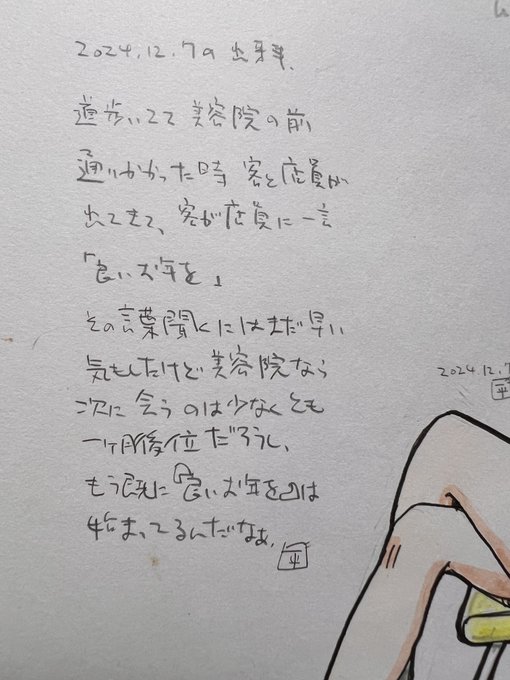 2024.12.7の出来事、
道歩いてて美容院の前
通りかかった時 客と店員が
出てきて、客が店員に一言
「良いお年を」
その言葉聞くにはまだ早い
気もしたけど美容院なら
次に会うのは少なくとも
一ヶ月後位だろうし、
もう既に『良いお年を』は
始まってるんだなぁ。
平
2024.12.7
平